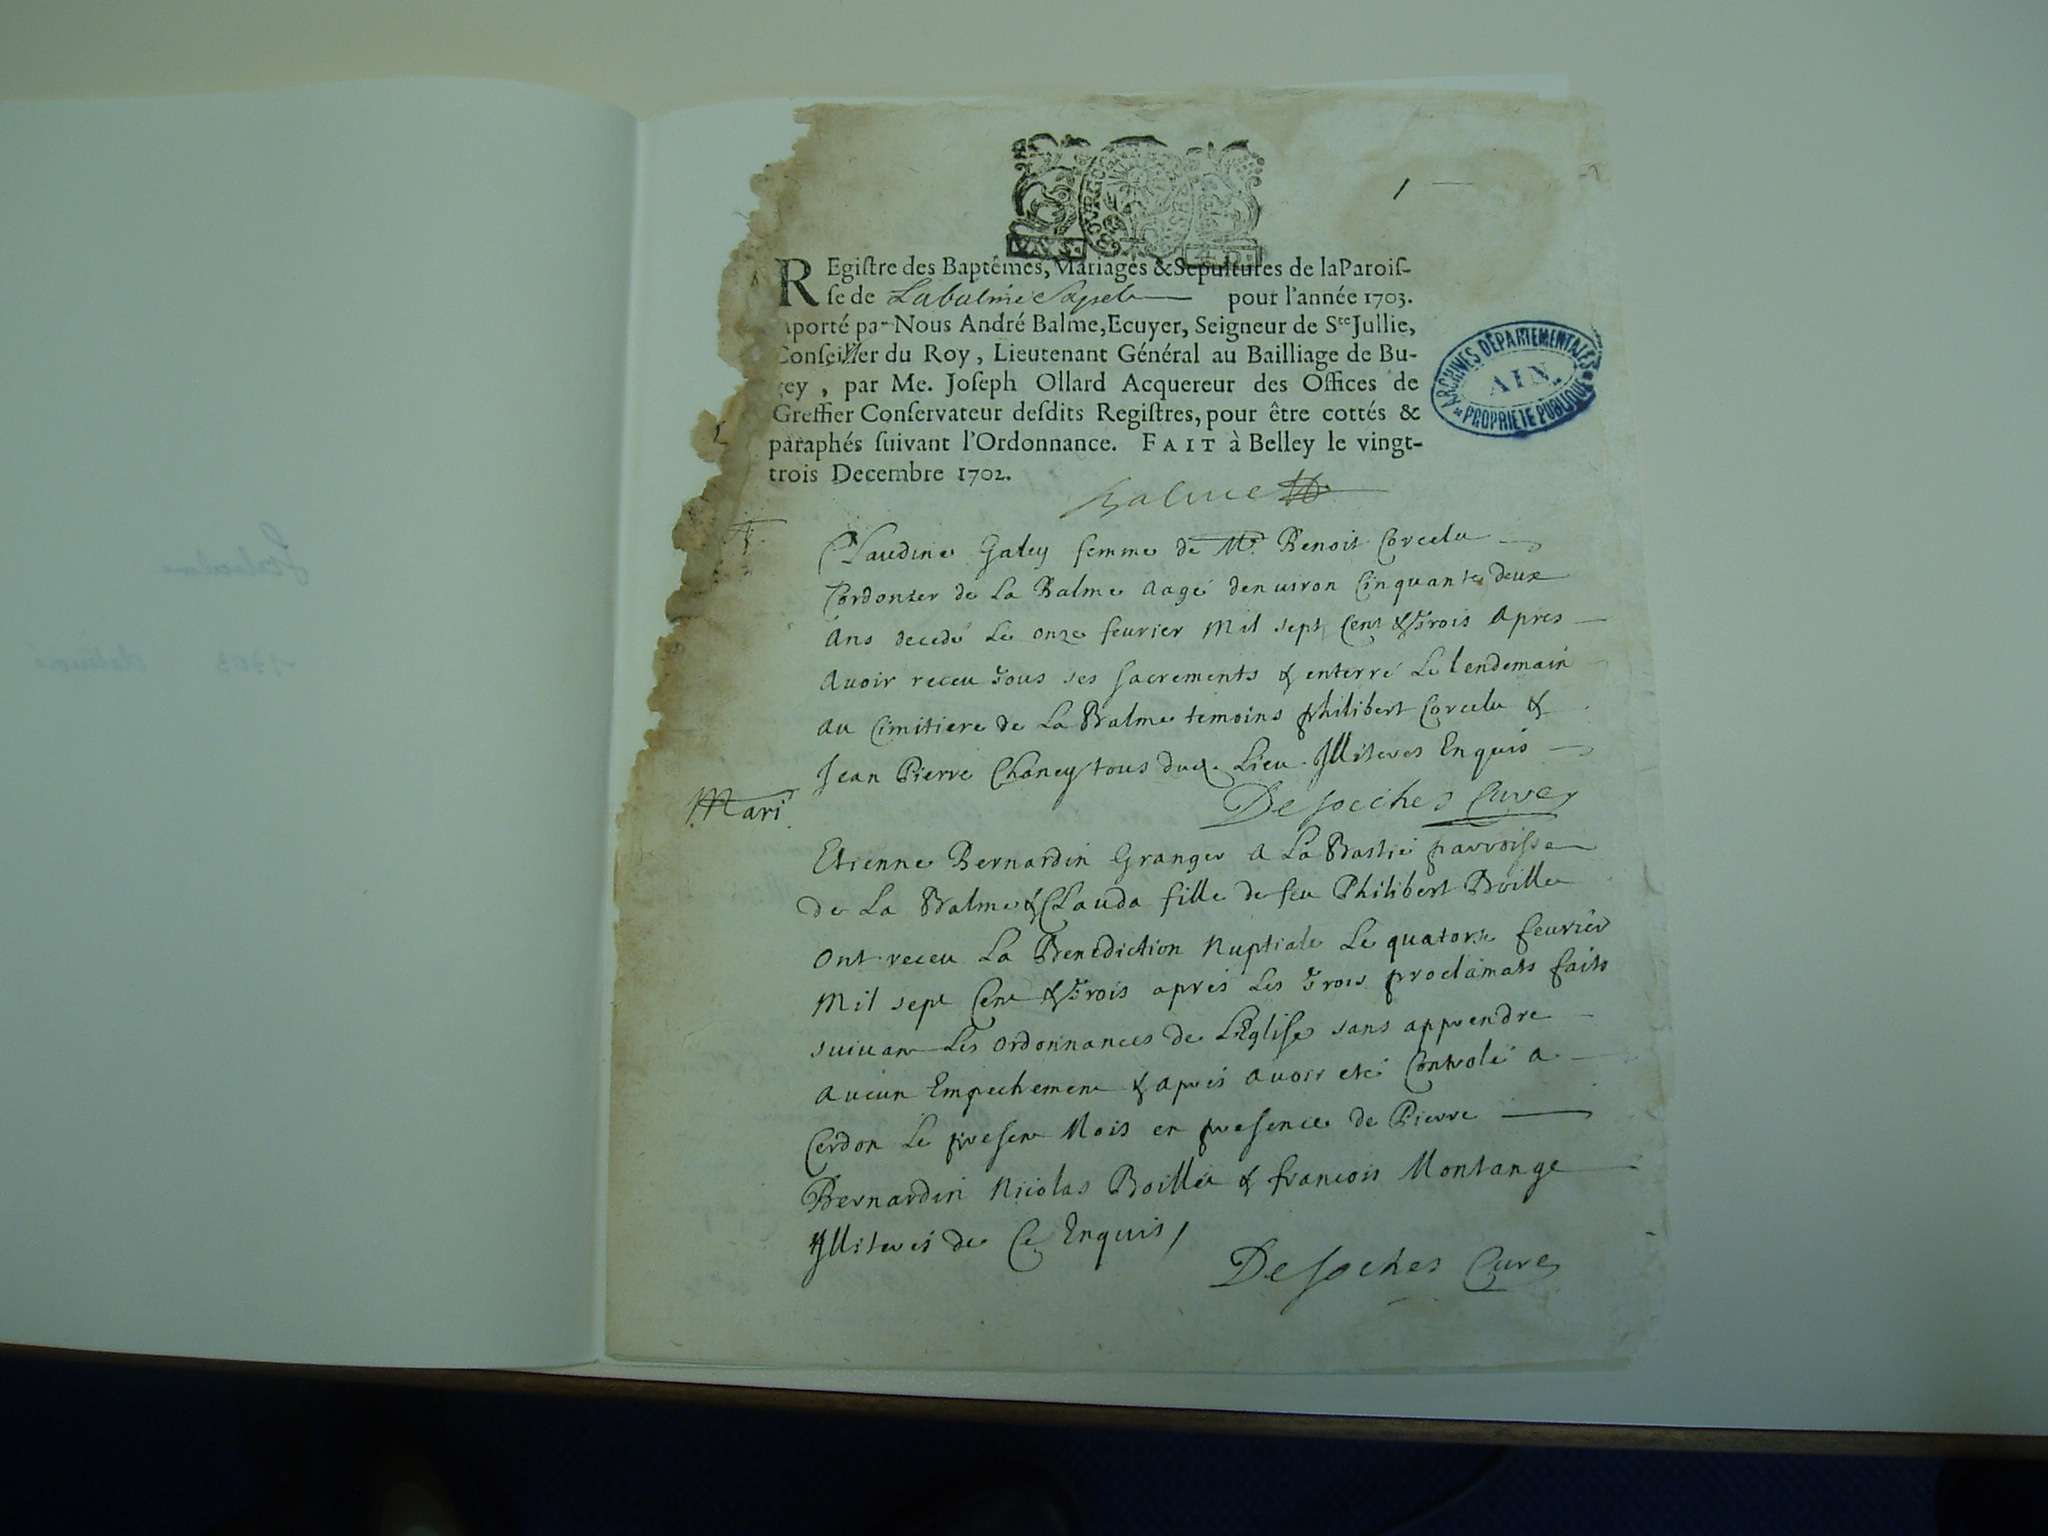 1
REgistre des Baptêmes, Mariages & Sepultures de la Parois-
se de Labalme Sapel pour l'année 1703.
aporté par Nous André Balme, Ecuyer, Seigneur de Ste Jullie,
Conseiller du Roy, Lieutenant Général au Bailliage de Bu-
gey, par Me. Joseph Ollard Acquereur des Offices de
Greffier Conservateur desdits Registres, pour être cottés &
paraphés suivant l'Ordonnance. FAIT à Belley le vingt-
trois Decembre 1702.
ARCHIVES DÉPARTEMENTALES
AIN
PROPRIÉTÉ PUBLIQUE
Balme
Claudine Galey femme de Me. Benoit Corcelu
Cordonier de La Balme aagé denuiron Cinquante deux
Ans decedé Le onze feurier Mil sept Cent & Trois Apres
Auoir receu Tous ses sacrements & enterré Le lendemain
Au Cimitiere de La Balme temoins philibert Corcelu &
Jean Pierre Chaney tous dud. Lieu. Illiterés Enquis
Desoeches Curé
Mari
Etienne Bernardin Granger A La Bastie parroisse
de La Balme & CLauda fille de feu Philibert Boillu
Ont receu La Benediction Nuptiale Le quatorse feurier
Mil sept Cent & Trois aprés Les Trois proclamats faits
suiuant Les ordonnances de LEglise sans apprendre
Aucun Empechement & aprés auoir eté Controlé a
Cerdon Le present Mois en presence de Pierre
Bernardin Nicolas Boillu & francois Montange
Illiterés de Ce Enquis,
Desoches Curé